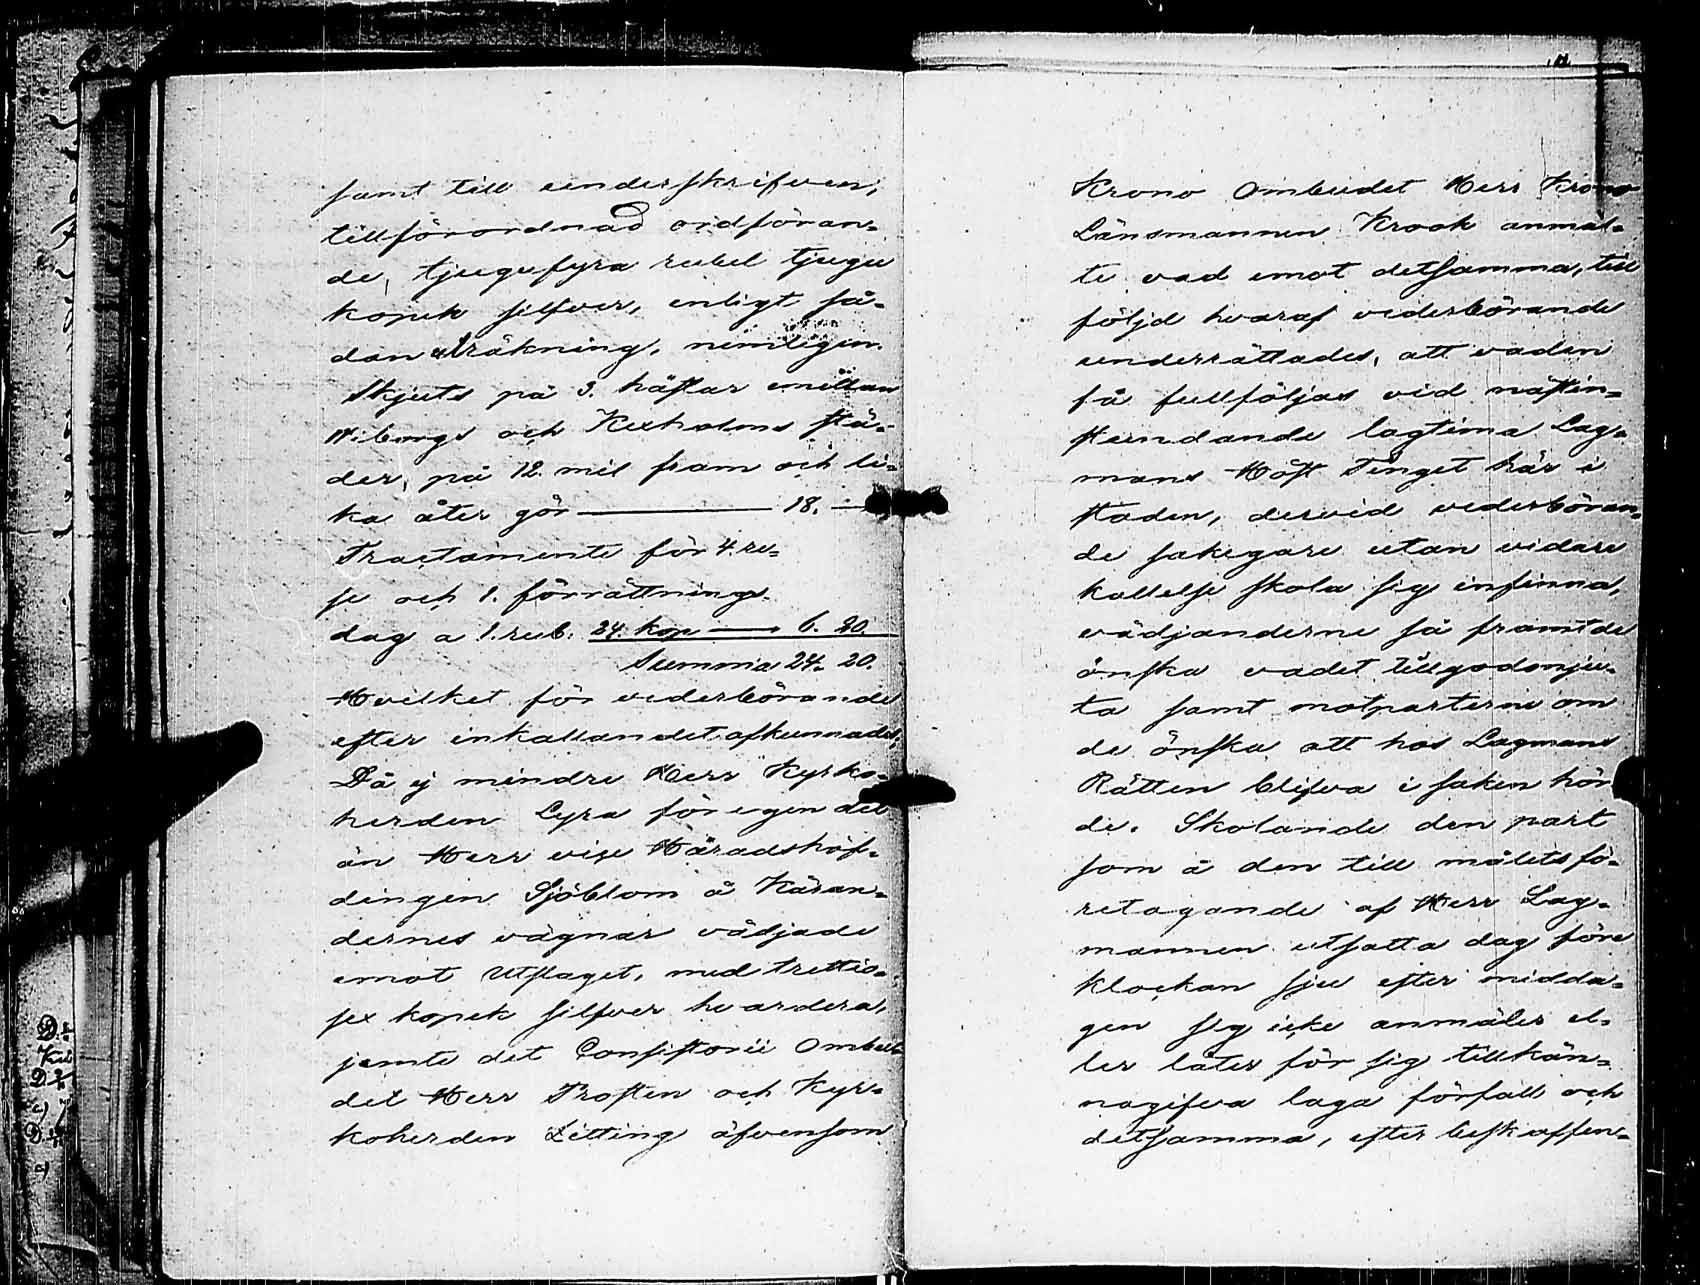 samt till underskrifven,
tillförordnad ordföran-
de, tjugufyra rubel tjugu
kopek silfver, enligt så-
dan uträkning, nemligen.
Skjuts på 3. hästar emellan
Wiborgs och Kexholms stä-
der, på 12. mil fram och li-
ka åter gör ——— 18. —
Tractamente för 4 re-
se och 1. förrättnings
dag a 1. rub. 24. kop — 6. 20.
Summa 24. 20.
Hvilket för vederbörande
efter inkallandet afkunnades,
Då ej mindre Herr Kyrko-
herden Lyra för egen del
än Herr vice Häradshöf-
dingen Sjöblom å Käran-
dernes vägnar vädjade
emot Utslaget, med trettio-
sex kopek silfver hvardera,
jemte det Consistorii Ombu-
det Herr Prosten och Kyr-
koherden Zitting äfvensom
Krono Ombudet Herr Krono
Länsmannen Krook anmäl-
te vad emot detsamma, till
följd hvaraf vederbörande
underrättades, att vaden
få fullföljas vid nästin-
stundande lagtima Lag-
mans Höst Tinget här i
staden, dervid vederböran-
de sakegare utan vidare
kallelse skola sig infinna,
vädjanderne så framt de
önska vadet tillgodonju-
ta samt motparterne om
de önska att hos Lagmans
Rätten blifva i saken hör
de. Skolande den part
som å den till målets fö-
retagande af Herr Lag-
mannen utsatta dag före
klockan sju efter midda-
gen sig icke anmäler el-
ler låter för sig tillkän-
nagifva laga förfall och
detsamma, efter beskaffen-